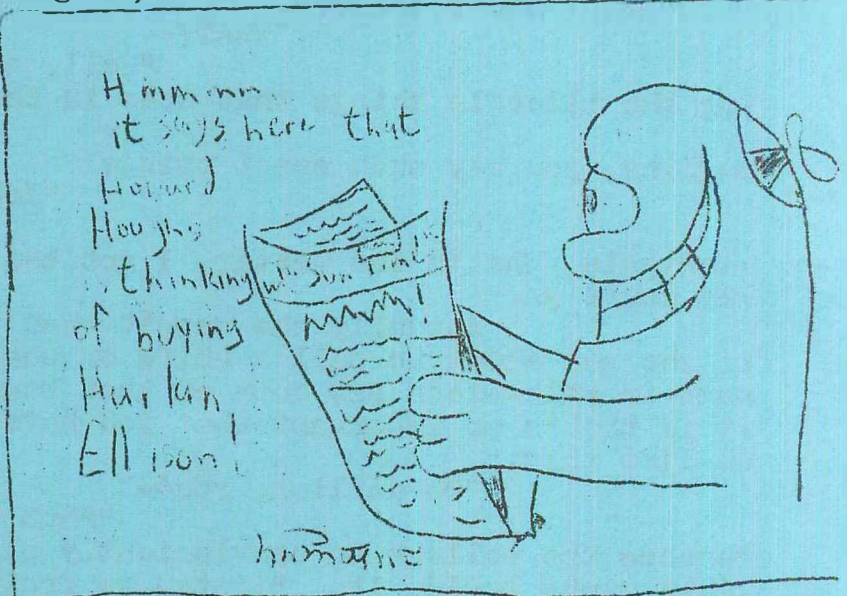 Hmmmm
it says here that
Howard
Hughs
thinking
of buying
Harlan
Ellison!
Sun Times